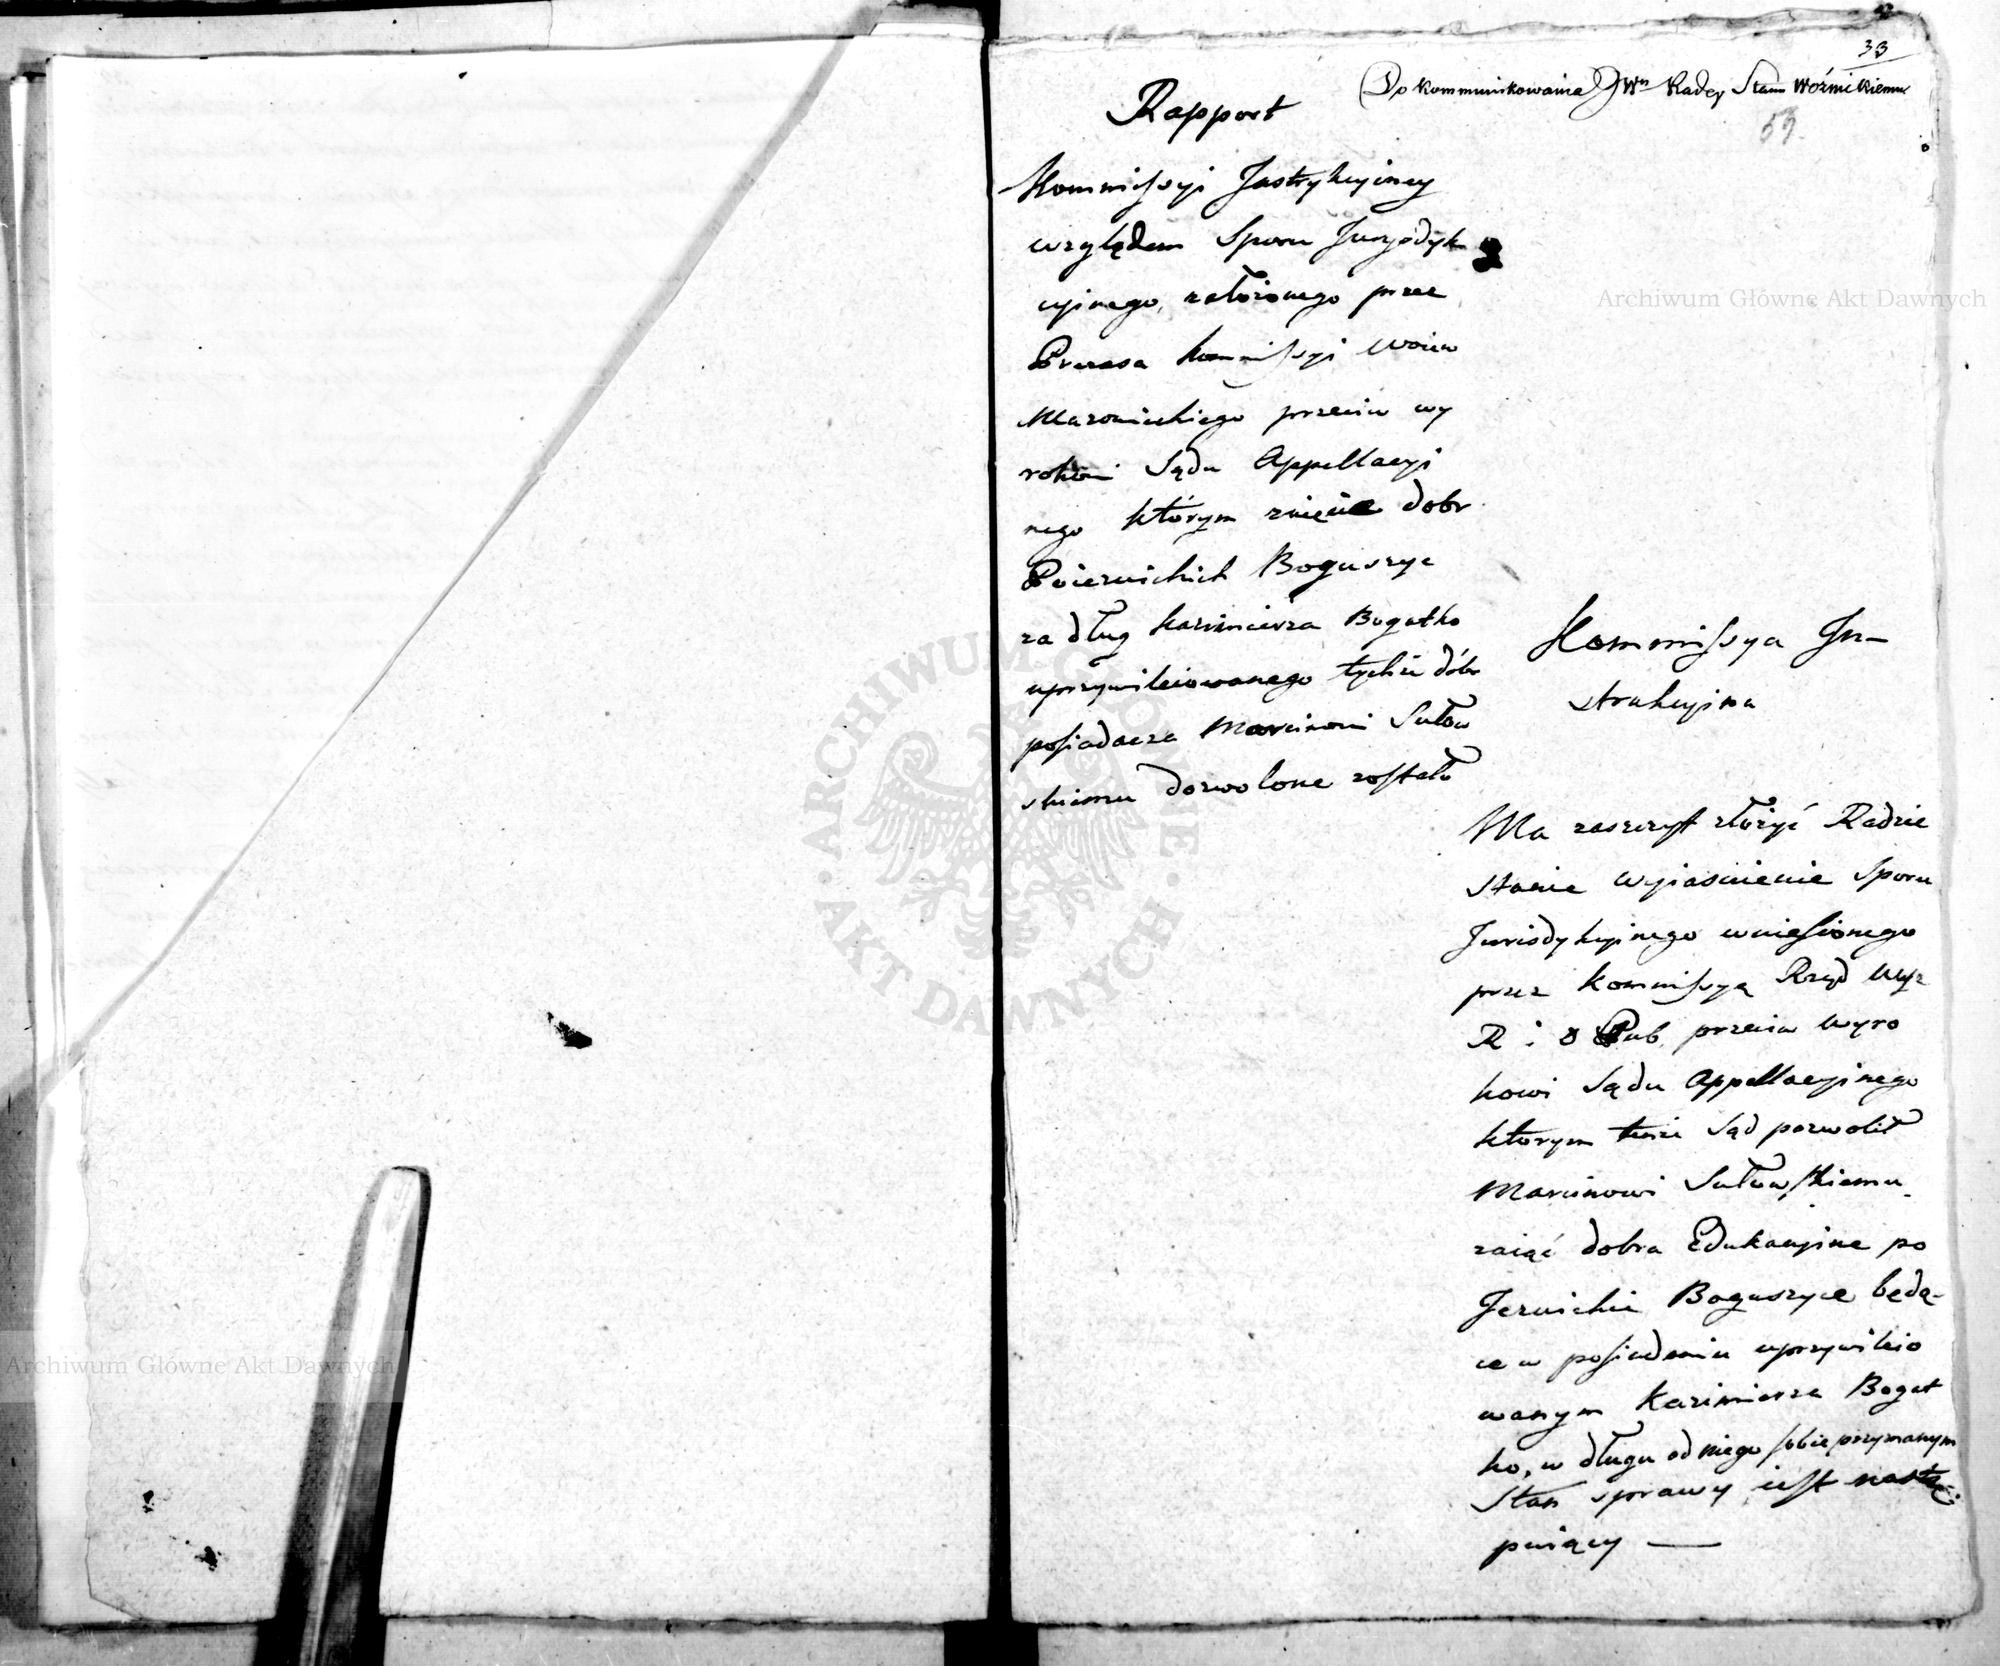 33
Do kommunikowania JWu Radcy Stanu Woźnickiemu
59.
Rapport
Kommissyi Jnstrykcyiney
względem Sporu Juryzdyk
cyinego, założonego prze
Prezesa Kommissyi Woiew
Mazowieckiego przeciw wy
rokowi Sądu Appellacyi
nego którym zaięcie dobr
Poiezuickich Boguszyc
za dług Kazimierza Bogatko
uprzywileiowanego tychże dóbr
posiadacza Marcinowi Sułow
skiemu dozwolone zostało
Kommissya Jn-
strukcyina
Ma zaszczyt złożyć Radzie
Stanu wyiaśnienie Sporu
Jurisdykcyinego wniesionego
przez Kommissyą Rząd Wyz
R i O Pub. przeciw Wyro
kowi Sądu Appellacyinego
ktorym tenże Sąd pozwolił
Marcinowi Sułowskiemu
zaiąć dobra Edukacyine po
Jezuickie Boguszyce będą-
ce w posiadaniu uprzywileio
wanym Kazimierza Bogat
ko, w długu od niego sobie przyznanym
Stan sprawy iest nastę
puiący —
Archiwum Główne Akt Dawnych
Archiwum Główne Akt Dawnych
ARCHIWUM GŁÓWNE AKT DAWNYCH